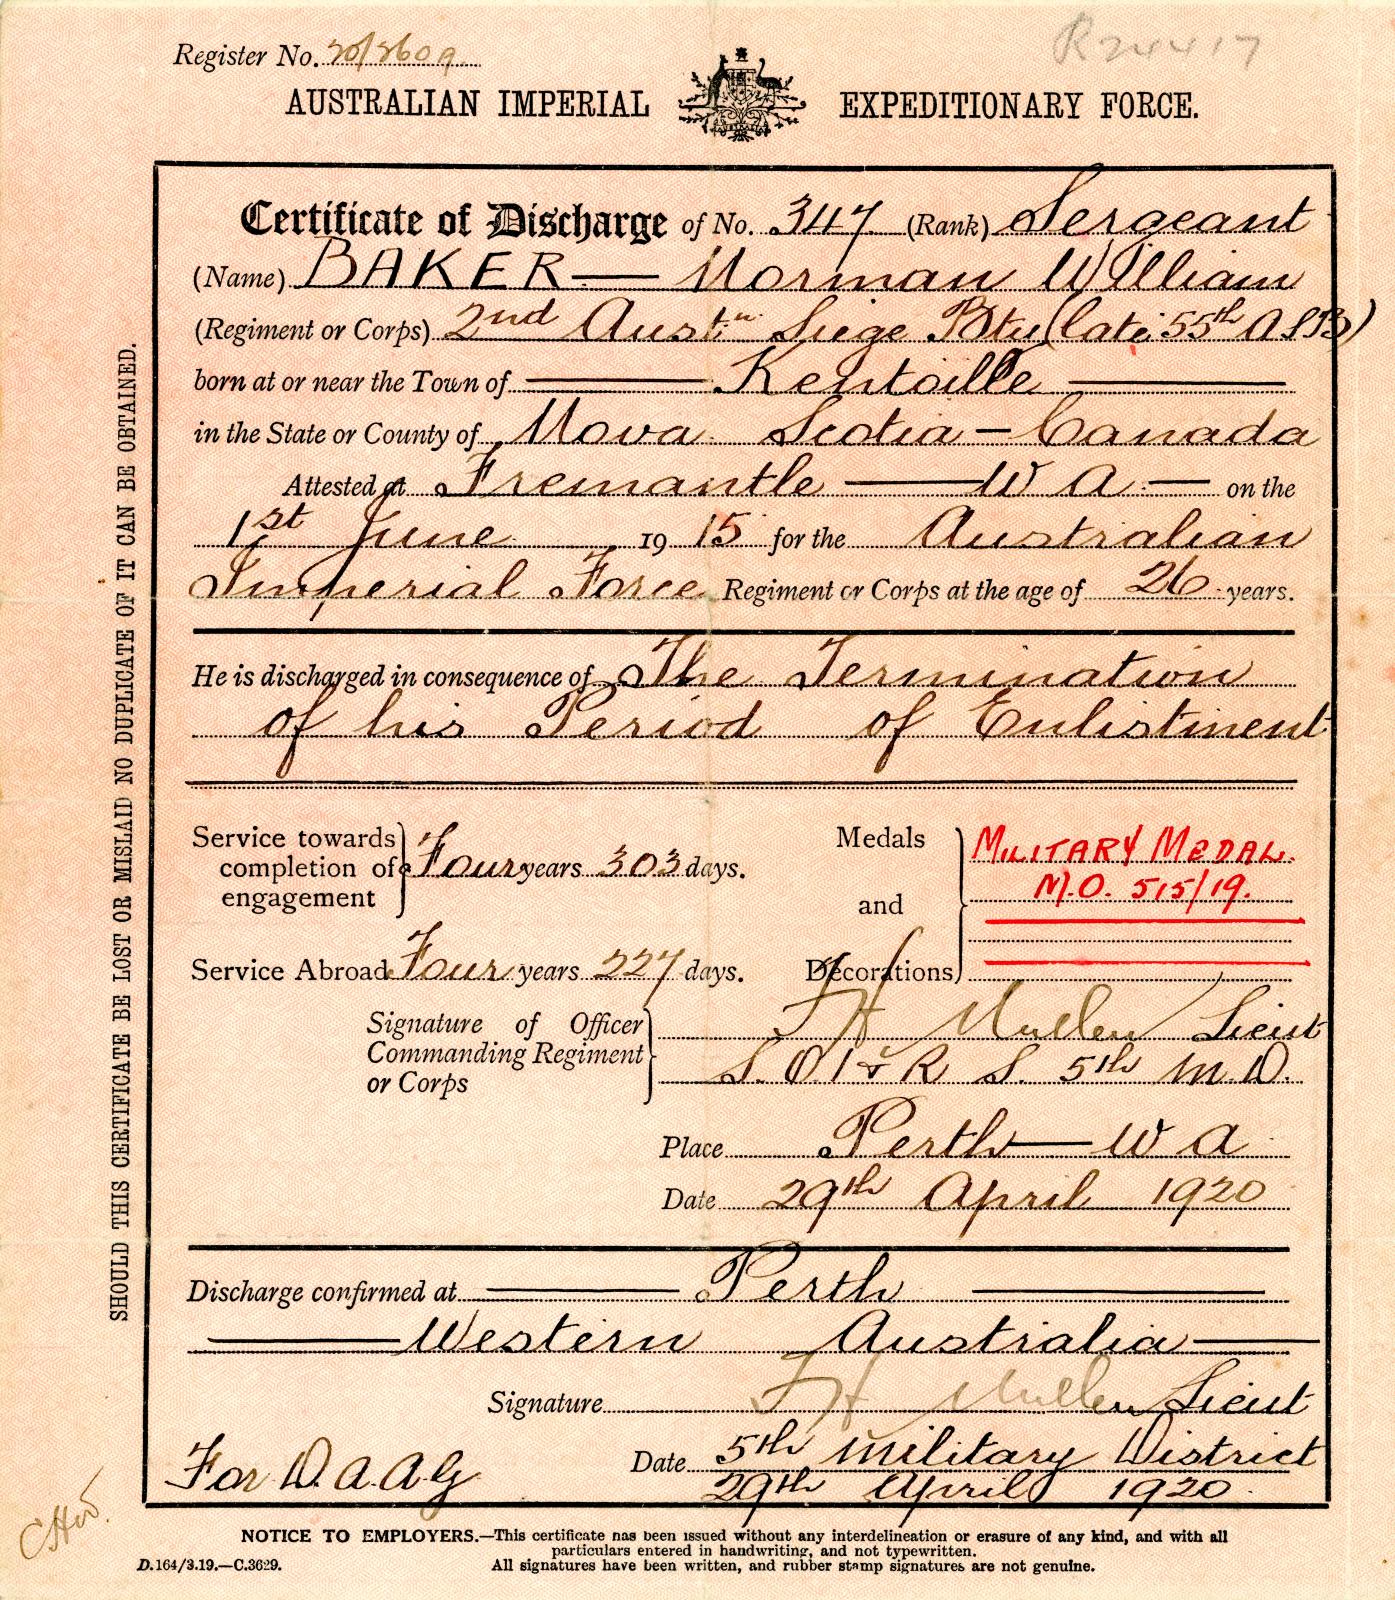 Register No. 20/2609
R24417
AUSTRALIAN IMPERIAL EXPEDITIONARY FORCE.
Certificate of Discharge of No. 347 (Rank) Sergeant
(Name) BAKER — Norman William
(Regiment or Corps) 2nd Austn Siege Bty (late 55th A S B)
born at or near the Town of Kentville
in the State or County of Nova Scotia - Canada
Attested at Fremantle — W A — on the
1st June 1915 for the Australian
Imperial Force Regiment or Corps at the age of 26 years.
He is discharged in consequence of The Termination
of his Period of Enlistment
Service towards completion of engagement Four years 303 days.
Medals and Decorations MILITARY MEDAL.
M.O. 515/19.
Service Abroad Four years 227 days.
Signature of Officer Commanding Regiment or Corps F H Mullen Lieut
S. O. I & R S. 5th M.D.
Place Perth — W A
Date 29th April 1920
Discharge confirmed at Perth
Western Australia
Signature F H Mullen Lieut
For D.A.A.G Date 5th Military District
29th April 1920
NOTICE TO EMPLOYERS.—This certificate has been issued without any interdelineation or erasure of any kind, and with all
particulars entered in handwriting, and not typewritten.
D.164/3.19.—C.3629. All signatures have been written, and rubber stamp signatures are not genuine.
SHOULD THIS CERTIFICATE BE LOST OR MISLAID NO DUPLICATE OF IT CAN BE OBTAINED.